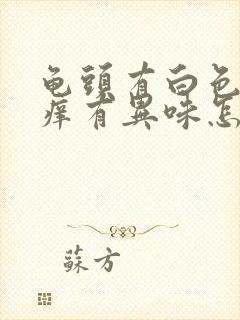 龟頭有白色
痒有異味怎
蘇方